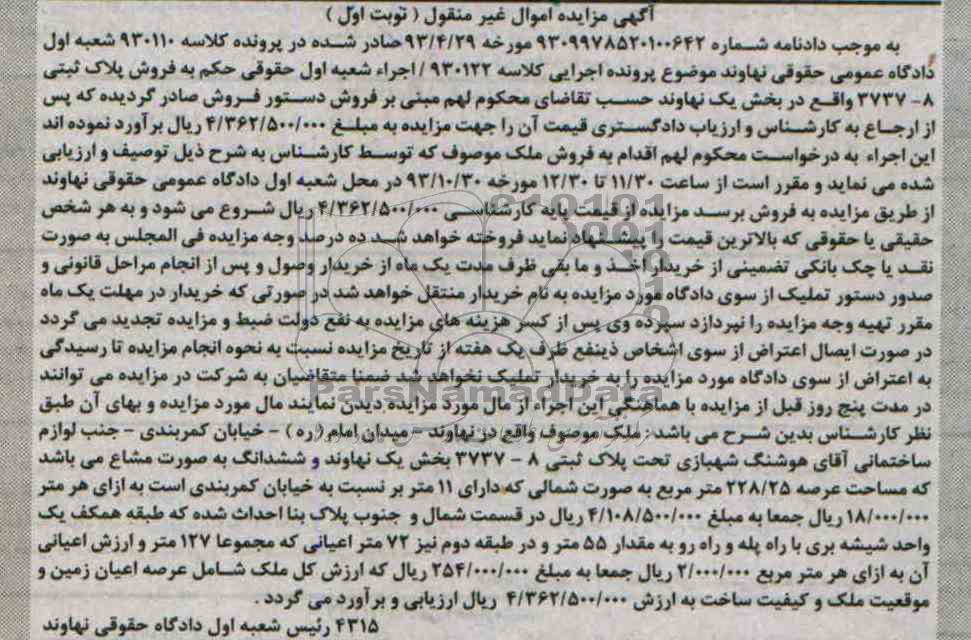 آگهی مزایده اموال غیر منقول ( نوبت اول )
به موجب دادنامه شماره ۹۳۰۹۹۷۸۵۲۰۱۰۰۶۴۲ مورخه ۹۳/۴/۲۹ صادر شده در پرونده کلاسه ۹۳۰۱۱۰ شعبه اول
دادگاه عمومی حقوقی نهاوند موضوع پرونده اجرایی کلاسه ۹۳۰۱۲۲ / اجراء شعبه اول حقوقی حکم به فروش پلاک ثبتی
۸- ۳۷۳۷ واقع در بخش یک نهاوند حسب تقاضای محکوم لهم مبنی بر فروش دستور فروش صادر گردیده که پس
از ارجاع به کارشناس و ارزیاب دادگستری قیمت آن را جهت مزایده به مبلغ ۴/۳۶۲/۵۰۰/۰۰۰ ریال برآورد نموده اند
این اجراء به درخواست محکوم لهم اقدام به فروش ملک موصوف که توسط کارشناس به شرح ذیل توصیف و ارزیابی
شده می نماید و مقرر است از ساعت ۱۱/۳۰ تا ۱۲/۳۰ مورخه ۹۳/۱۰/۳۰ در محل شعبه اول دادگاه عمومی حقوقی نهاوند
از طریق مزایده به فروش برسد مزایده از قیمت پایه کارشناسی ۴/۳۶۲/۵۰۰/۰۰۰ ریال شروع می شود و به هر شخص
حقیقی یا حقوقی که بالاترین قیمت را پیشنهاد نماید فروخته خواهد شد ده درصد وجه مزایده فی المجلس به صورت
نقد یا چک بانکی تضمینی از خریدار اخذ و ما بقی ظرف مدت یک ماه از خریدار وصول و پس از انجام مراحل قانونی و
صدور دستور تملیک از سوی دادگاه مورد مزایده به نام خریدار منتقل خواهد شد در صورتی که خریدار در مهلت یک ماه
مقرر تهیه وجه مزایده را نپردازد سپرده وی پس از کسر هزینه های مزایده به نفع دولت ضبط و مزایده تجدید می گردد
در صورت ایصال اعتراض از سوی اشخاص ذینفع ظرف یک هفته از تاریخ مزایده نسبت به نحوه انجام مزایده تا رسیدگی
به اعتراض از سوی دادگاه مورد مزایده را به خریدار تملیک نخواهد شد ضمنا متقاضیان به شرکت در مزایده می توانند
در مدت پنج روز قبل از مزایده با هماهنگی این اجراء از مال مورد مزایده دیدن نمایند مال مورد مزایده و بهای آن طبق
نظر کارشناس بدین شرح می باشد : ملک موصوف واقع در نهاوند - میدان امام (ره ) - خیابان کمربندی - جنب لوازم
ساختمانی آقای هوشنگ شهبازی تحت پلاک ثبتی ۸ - ۳۷۳۷ بخش یک نهاوند و ششدانگ به صورت مشاع می باشد
که مساحت عرصه ۲۲۸/۲۵ متر مربع به صورت شمالی که دارای ۱۱ متر بر نسبت به خیابان کمربندی است به ازای هر متر
۱۸/۰۰۰/۰۰۰ ریال جمعا به مبلغ ۴/۱۰۸/۵۰۰/۰۰۰ ریال در قسمت شمال و جنوب پلاک بنا احداث شده که طبقه همکف یک
واحد شیشه بری با راه پله و راه رو به مقدار ۵۵ متر و در طبقه دوم نیز ۷۲ متر اعیانی که مجموعا ۱۲۷ متر و ارزش اعیانی
آن به ازای هر متر مربع ۲/۰۰۰/۰۰۰ ریال جمعا به مبلغ ۲۵۴/۰۰۰/۰۰۰ ریال که ارزش کل ملک شامل عرصه اعیان زمین و
موقعیت ملک و کیفیت ساخت به ارزش ۴/۳۶۲/۵۰۰/۰۰۰ ریال ارزیابی و برآورد می گردد .
۴۳۱۵ رئیس شعبه اول دادگاه حقوقی نهاوند
ParsNamadData